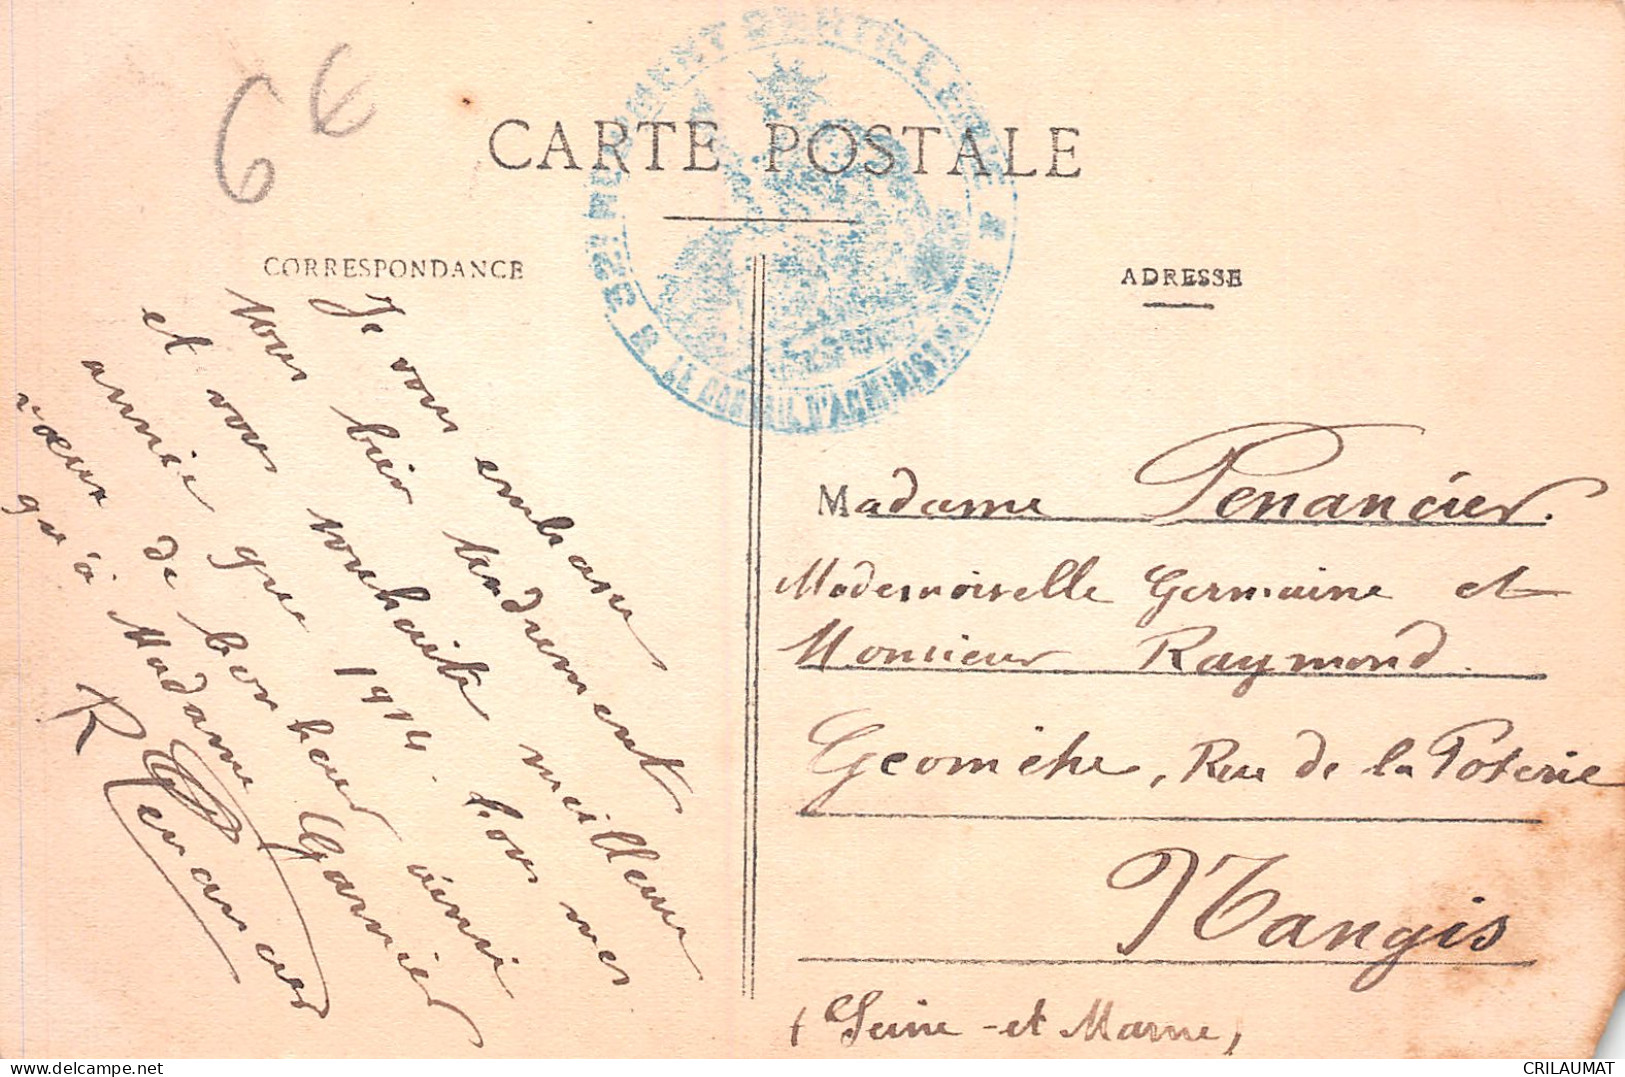 6€
CARTE POSTALE
CORRESPONDANCE
ADRESSE
32E REGIMENT D'ARTILLERIE
LE CONSEIL D'ADMINISTRATION
Je vous embrasse
tous bien tendrement
et vous souhaite meilleure
année que 1914. tous mes
vœux de bonheur ainsi
qu'à Madame Garnier
R Penancier
Madame Penancier.
Mademoiselle Germaine et
Monsieur Raymond.
Géomètre, Rue de la Poterie
Nangis
(Seine-et Marne)
CRILAUMAT